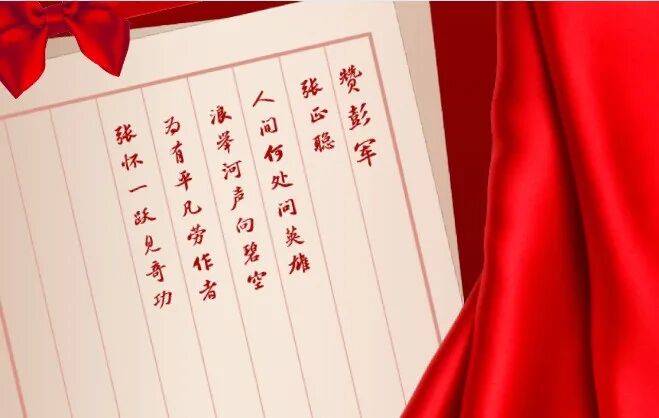 赞彭军
张正聪
人间何处问英雄
浪举河声向碧空
为有平凡劳作者
张怀一跃见奇功